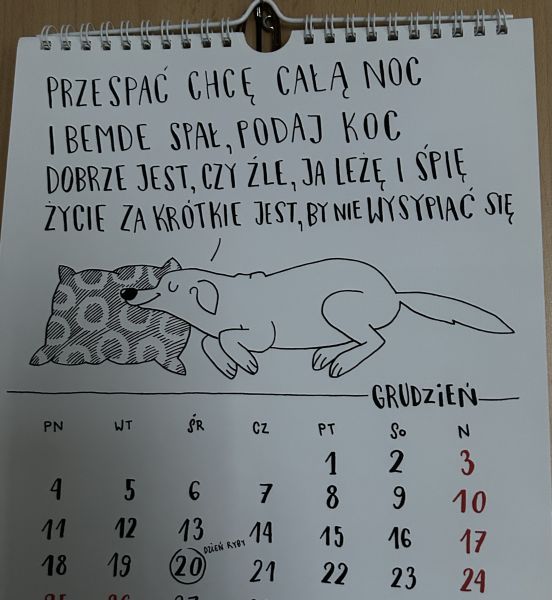 PRZESPAĆ CHCĘ CAŁĄ NOC
I BEMDE SPAŁ, PODAJ KOC
DOBRZE JEST, CZY ŹLE, JA LEŻĘ I ŚPIĘ
ŻYCIE ZA KRÓTKIE JEST, BY NIE WYSYPIAĆ SIĘ
GRUDZIEŃ
PN WT ŚR CZ PT SO N
1 2 3
4 5 6 7 8 9 10
11 12 13 14 15 16 17
DZIEŃ RYBY
18 19 20 21 22 23 24